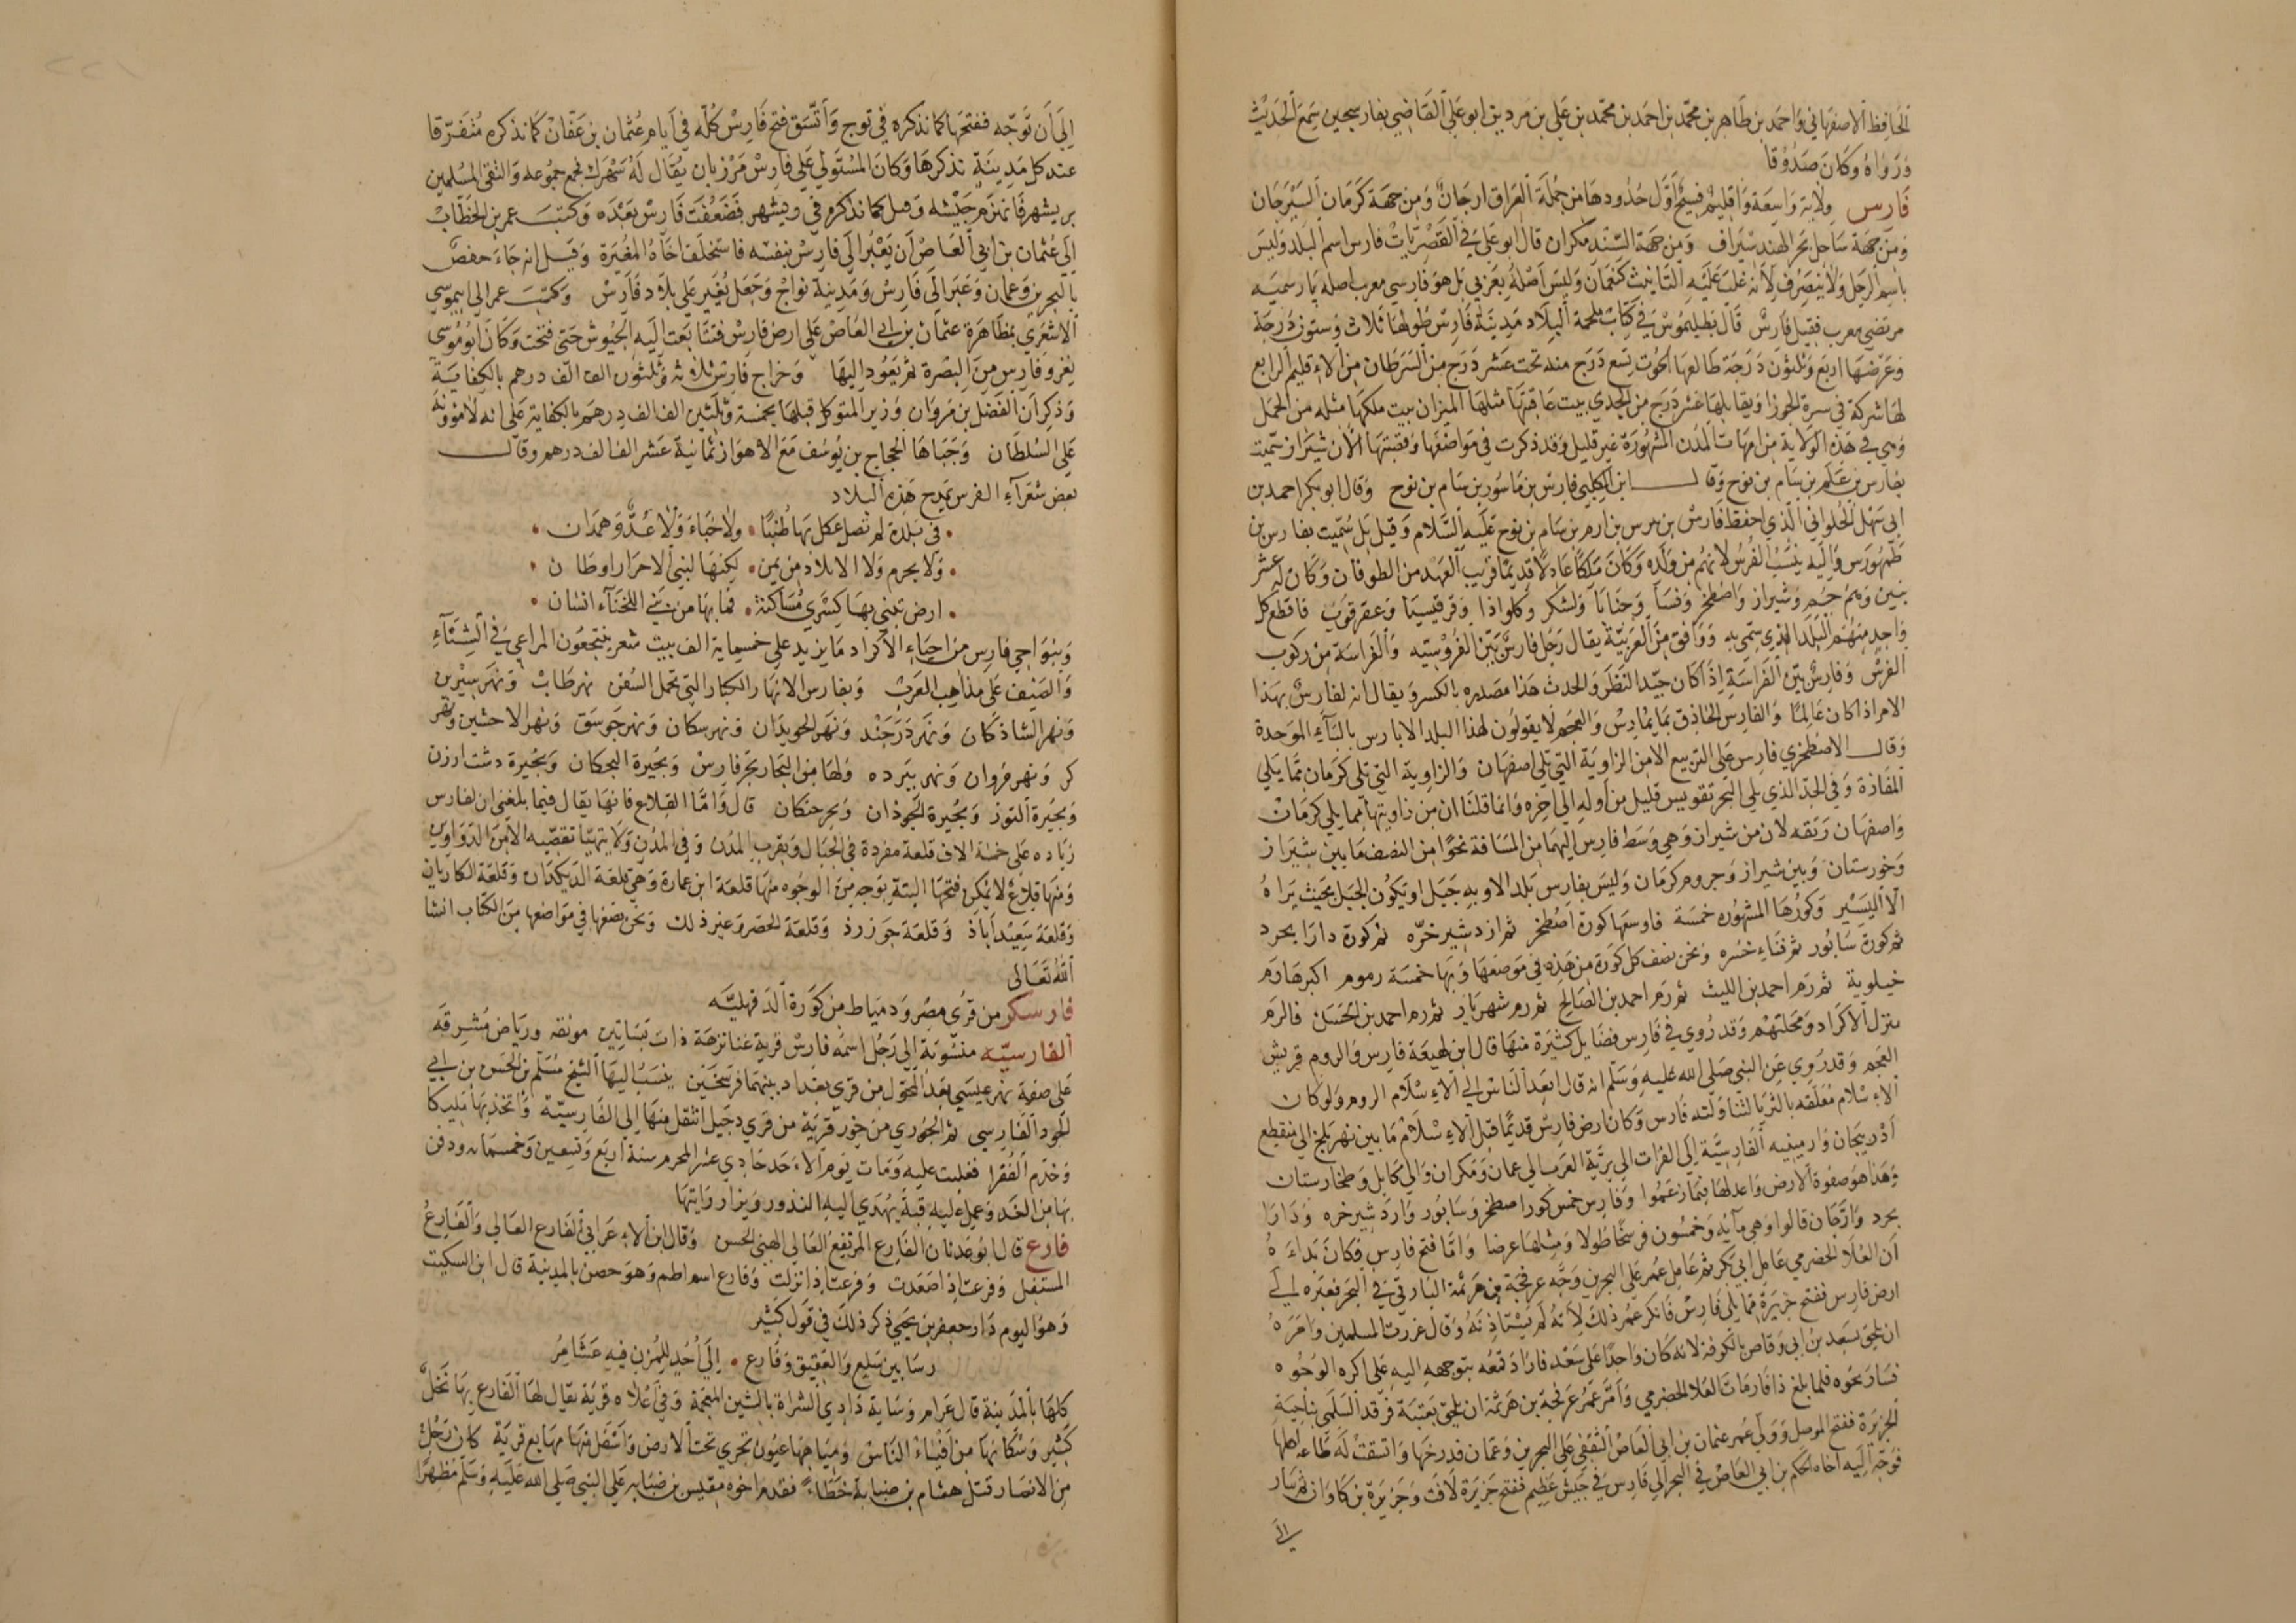 الحافظ الاصفهاني واحمد بن طاهر بن محمد بن احمد بن محمد بن علي بن مردين ابو علي القاضي بفارسجين سمع الحديث
ورواه وكان صدوقا
فارس ولاية واسعة واقليم فسيح اول حدودها من جهة العراق ارجان ومن جهة كرمان السيرجان
ومن جهة ساحل بحر الهند سيراف ومن جهة السند مكران قال ابو علي في القصريات فارس اسم البلد وليس
باسم الرجل ولا ينصرف لانه غلب عليه التانيث كنعمان وليس اصله بعربي بل هو فارسي معرب اصله پارس
مرتضى معرب فقيل فارس قال بطليموس في كتاب ملحمة البلاد مدينة فارس طولها ثلاث وستون درجة
وعرضها اربع وثلثون درجة طالعها الحوت تسع درج منه تحت عشر درج من السرطان من الاقليم الرابع
لها شركة في سرة الجوزا ويقابلها عشر درج من الجدي بيت عاقبتها مثلها الميزان بيت ملكها مثله من الحمل
وهي في هذه الولاية من امهات المدن المشهورة غير قليل وقد ذكرت في مواضعها وقصبتها الان شيراز سميت
بفارس بن علم بن سام بن نوح وقال ابن الكلبي فارس بن ماسور بن سام بن نوح وقال ابو بكر احمد بن
ابي سهل الحلواني الذي احفظ فارس بن مرس بن ارم بن سام بن نوح عليه السلام وقيل بل سميت بفارس بن
طهمورس واليه ينسب الفرس لانهم من ولده وكان ملكا عادلا قديما قريب العهد من الطوفان وكان له عشر
بنين وهم جم وشيراز واصطخر وفسا وجنابا ولشكر وكلواذا وقرقيسيا وعقرقوف فاقطع كل
واحد منهم البلد الذي سمي به ووافق من العربية يقال رجل فارس بين الفروسيه والفراسة من ركوب
الفرس وفارس بين الفراسة اذا كان جيد النظر والحدث هذا مصدره بالكسر ويقال انه لفارس بهذا
الامر اذا كان عالما والفارس الحاذق بما يمارس والعجم لا يقولون لهذا البلد الا بارس بالباء الموحدة
وقال الاصطخري فارس على التربيع الا من الزاوية التي تلي اصفهان والزاوية التي تلي كرمان مما يلي
المفازة وفي الحد الذي يلي البحر تقويس قليل من اوله الى اخره وانما قلنا ان من زاويتها مما يلي كرمان
واصفهان زنقه لان من شيراز وهي وسط فارس اليهما من المسافة نحوا من النصف ما بين شيراز
وخورستان وبين شيراز وجروم كرمان وليس بفارس بلد الا وبه جبل او يكون الجبل بحيث يراه
الا اليسير وكورها المشهوره خمسة فاوسعها كورة اصطخر ثم ازدشير خره ثم كورة دارابجرد
ثم كورة سابور ثم قناء خسره ونحن نصف كل كورة من هذه في موضعها وبها خمسة رموم اكبرها رم
خيلوية ثم رم احمد بن الليث ثم رم احمد بن الصالح ثم رم شهريار ثم رم احمد بن الحسن فالرم
منزل الاكراد ومحلتهم وقد روي في فارس فضايل كثيرة منها قال ابن لهيعة فارس والروم قريش
العجم وقد روي عن النبي صلى الله عليه وسلم انه قال ابعد الناس الى الاسلام الروم ولو كان
الاسلام معلقه بالثريا لتناولته فارس وكان ارض فارس قديما قبل الاسلام ما بين نهر بلخ الى منقطع
اذربيجان وارمينيه الفارسية الى الفرات الى برية العرب الى عمان ومكران والى كابل وطخارستان
وهذا هو صفوة الارض واعدلها فيما زعموا وفارس خمس كور اصطخر وسابور واردشير خره ودارا
بجرد وارجان قالوا وهي مايه وخمسون فرسخا طولا ومثلها عرضا واما فتح فارس فكان بداءه
ان العلا الحضرمي عامل ابي بكر ثم عامل عمر على البحرين وجه عرفجة بن هرثمة البارقي في البحر فعبره الى
ارض فارس ففتح جزيرة مما يلي فارس فانكر عمر ذلك لانه لم يستاذنه وقال غررت المسلمين وامره
ان يلحق بسعد بن ابي وقاص بالكوفة لانه كان واجدا على سعد فاراد قمعه بتوجهه اليه على اكره الوجوه
فسار نحوه فلما بلغ ذا قار مات العلا الحضرمي وامر عمر عرفجة بن هرثمة ان يلحق بعتبة بن فرقد السلمي بناحية
الجزيرة ففتح الموصل وولى عمر عثمان بن ابي العاص الثقفي على البحرين وعمان فدوخها واتسقت له طاعه اهلها
فوجه اليه اخاه الحكم بن ابي العاص في البحر الى فارس في جيش عظيم ففتح جزيرة لافت وجزيرة بن كاوان ثم سار
الى
الى ان توجه ففتحها كما نذكره في توج واتسق فتح فارس كله في ايام عثمان بن عفان كما نذكره متفرقا
عند كل مدينة نذكرها وكان المستولي على فارس مرزبان يقال له شهرك فجمع جموعه والتقى المسلمين
بريشهر فانهزم جيشه وقتل كما نذكره في ريشهر فضعفت فارس بعده وكتب عمر بن الخطاب
الى عثمان بن ابي العاص ان يعبر الى فارس بنفسه فاستخلف اخاه المغيرة وقيل انه جاء حفص
بالبحرين وعمان وعبر الى فارس ومدينة تواج وجعل يغير على بلاد فارس وكتب عمر الى ابي موسي
الاشعري بمظاهرة عثمان بن ابي العاص على ارض فارس فتتابعت اليه الجيوش حتى فتحت وكان ابو موسى
يغزو فارس من البصرة ثم يعود اليها وخراج فارس ثلاثه وثلثون الف الف درهم بالكفاية
وذكر ان الفضل بن مروان وزير المتوكل قبلها بخمسة وثلثين الف الف درهم بالكفاية على انه لا مؤونة
على السلطان وجباها الحجاج بن يوسف مع الاهواز ثمانية عشر الف الف درهم وقال
بعض شعرآء الفرس يمدح هذه البلاد
في بلدة لم تصل عكل بها طنبا ولا خباء ولا عك وهمدان
ولا يجرم ولا الابلاد من يمن لكنها لبني الاحرار اوطان
ارض تبني بها كسري مساكنه فما بها من بني اللخنآء انسان
وبنواحي فارس من احياء الاكراد ما يزيد على خمسماية الف بيت شعر ينتجعون المراعي في الشتآء
والصيف على مذاهب العرب وبفارس الانهار الكبار التي تحمل السفن نهر طاب ونهر سيرين
ونهر الشاذكان ونهر درجند ونهر الخوبدان ونهر سكان ونهر جرسق ونهر الاحشين ونهر
كر ونهر فروان ونهر بيرده ولها من البحار بحر فارس وبحيرة البجكان وبحيرة دشت ارزن
وبحيرة التوز وبحيرة الجوذان وبحر جنكان قال واما القلاع فانها يقال فيما بلغني ان لفارس
زياده على خمسة الاف قلعة مفردة في الجبال وبقرب المدن وفي المدن ولا يتهيا تقصيه الا من الدواوين
ومنها قلاع لا يمكن فتحها البتة بوجه من الوجوه منها قلعة ابن عمارة وهي قلعة الديكدان وقلعة الكاريان
وقلعة سعيد اباذ وقلعة جوزرذ وقلعة الجص وغير ذلك ونحن نصفها في مواضعها من الكتاب انشا
الله تعالى
فارسكر من قرى مصر ودمياط من كورة الدقهليه
الفارسيه منسوبة الى رجل اسمه فارس قرية غنا نزهة ذات بساتين مونقه ورياض مشرقه
على صفة نهر عيسي بعد المحول من قرى بغداد بينهما فرسخين ينسب اليها الشيخ مسلم بن الحسن بن ابي
الجود الفارسي ثم الحوري من حور قرية من قري دجيل انتقل منها الى الفارسية واتخذ بها
وخدم الفقرا فغلبت عليه ومات يوم الاحد حادي عشر المحرم سنة اربع وتسعين وخمسمائه ودفن
بها من الغد وعمل عليه قبة يهدي اليه النذور ويزار رايتها
فارع قال ابو عدنان الفارع المرتفع العالي الهيئ الحسن وقال ابن الاعرابي الفارع العالي والفارع
المستفل وفرعت اذا صعدت وفرعت اذا نزلت وفارع اسم اطم وهو حصن بالمدينة قال ابن السكيت
وهو اليوم دار جعفر بن يحيى ذكر ذلك في قول كثير
رسا بين سلع والعقيق وفارع الى احد للمزن فيه عشامر
كلها بالمدينة قال عرام وساية وادي الشراة بالشين المعجمة وفي اعلاه قرية يقال لها الفارع بها نخل
كثير وسكانها من افناء الناس ومياهها عيون تجري تحت الارض واسفل منها مهايع قرية كان رجل
من الانصار قتل هشام بن ضبابة خطاء فقدم اخوه مقيس بن ضبابه على النبي صلى الله عليه وسلم مظهرا